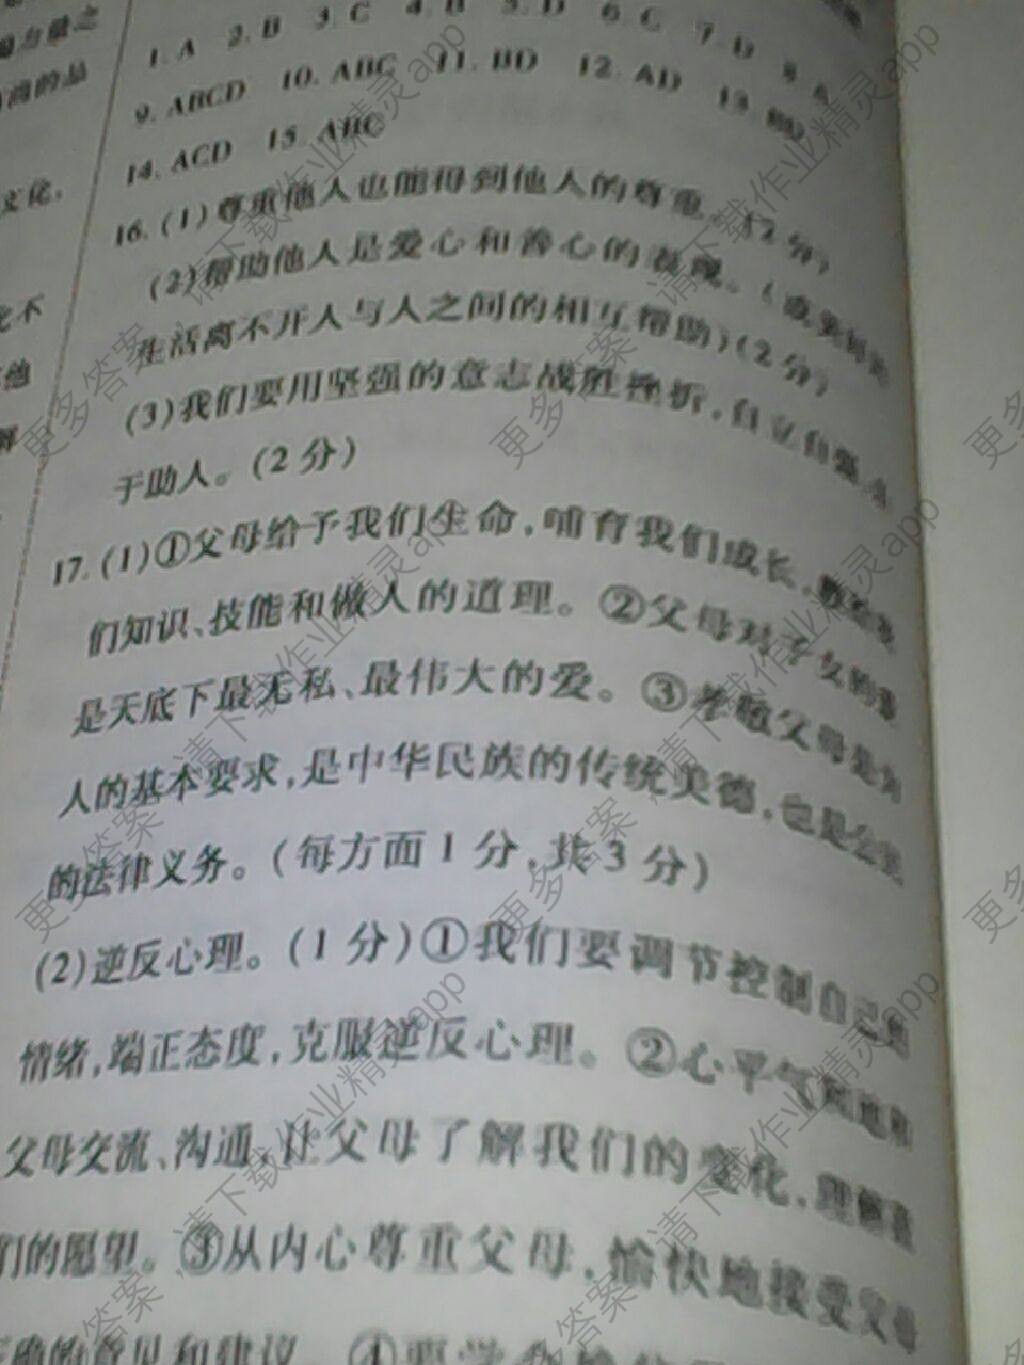 1. A 2. B 3. C 4. B 5. D 6. C 7. D 8. A
9. ABCD 10. ABC 11. BD 12. AD 13. BD
14. ACD 15. ABC
16. (1)尊重他人也能得到他人的尊重。(2分)
(2)帮助他人是爱心和善心的表现。(或
生活离不开人与人之间的相互帮助)(2分)
(3)我们要用坚强的意志战胜挫折,自立自强,
于助人。(2分)
17. (1)①父母给予我们生命,哺育我们成长,
们知识、技能和做人的道理。②父母对子女的
是天底下最无私、最伟大的爱。③孝敬父母是
人的基本要求,是中华民族的传统美德,也是公民
的法律义务。(每方面1分,共3分)
(2)逆反心理。(1分)①我们要调节控制自己的
情绪,端正态度,克服逆反心理。②心平气和地和
父母交流、沟通,让父母了解我们的变化,理解我
们的愿望。③从内心尊重父母,愉快地接受父母
正确的意见和建议。④要学会
量之
的品
文化,
不
他
解
更多答案,请下载作业精灵app